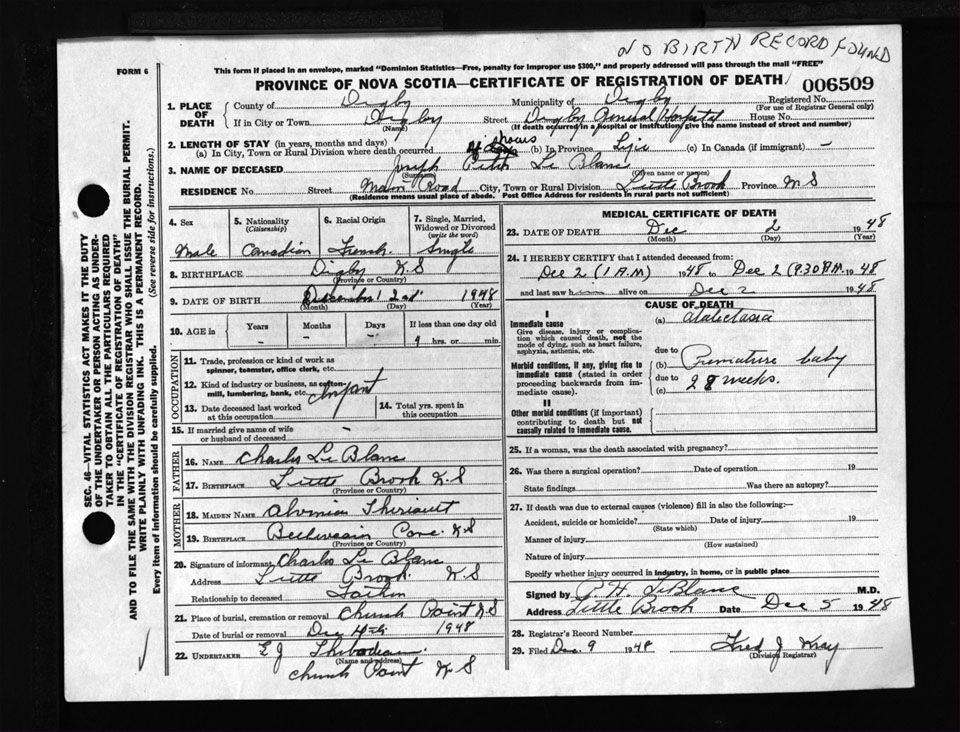 NO BIRTH RECORD FOUND
FORM 6
This form if placed in an envelope, marked "Dominion Statistics—Free, penalty for improper use $300," and properly addressed will pass through the mail "FREE"
PROVINCE OF NOVA SCOTIA—CERTIFICATE OF REGISTRATION OF DEATH
006509
SEC. 46—VITAL STATISTICS ACT MAKES IT THE DUTY
OF THE UNDERTAKER OR PERSON ACTING AS UNDER-
TAKER TO OBTAIN ALL THE PARTICULARS REQUIRED
IN THE "CERTIFICATE OF REGISTRATION OF DEATH"
AND TO FILE THE SAME WITH THE DIVISION REGISTRAR WHO SHALL ISSUE THE BURIAL PERMIT.
WRITE PLAINLY WITH UNFADING INK. THIS IS A PERMANENT RECORD.
Every item of Information should be carefully supplied. (See reverse side for instructions.)
1. PLACE OF DEATH
County of Digby Municipality of Digby Registered No.
(For use of Registrar General only)
If in City or Town Digby Street Digby General Hospital House No.
(Name) (If death occurred in a hospital or institution, give the name instead of street and number)
2. LENGTH OF STAY (in years, months and days)
(a) In City, Town or Rural Division where death occurred hours (b) In Province Life (c) In Canada (if immigrant) —
3. NAME OF DECEASED Joseph Peter Le Blanc
(Surname) (Given name or names)
RESIDENCE No. Street Main Road City, Town or Rural Division Little Brook Province N S
(Residence means usual place of abode. Post Office Address for residents in rural parts not sufficient)
4. Sex Male
5. Nationality (Citizenship) Canadian
6. Racial Origin French
7. Single, Married, Widowed or Divorced (write the word) Single
8. BIRTHPLACE Digby N.S
(Province or Country)
9. DATE OF BIRTH December 2nd 1948
(Month) (Day) (Year)
10. AGE in Years Months Days If less than one day old
— — — 9 hrs. or min.
OCCUPATION
11. Trade, profession or kind of work as spinner, teamster, office clerk, etc.
12. Kind of industry or business, as cotton-mill, lumbering, bank, etc. Infant
13. Date deceased last worked at this occupation
14. Total yrs. spent in this occupation
15. If married give name of wife or husband of deceased —
FATHER
16. NAME Charles Le Blanc
17. BIRTHPLACE Little Brook N.S
(Province or Country)
MOTHER
18. MAIDEN NAME Theriault
19. BIRTHPLACE Cove N.S
(Province or Country)
20. Signature of informant Charles Le Blanc
Address Little Brook N S
Relationship to deceased Father
21. Place of burial, cremation or removal Church Point N S
Date of burial or removal Dec 4th 1948
22. UNDERTAKER E J Thibodeau
(Name and address)
Church Point N S
MEDICAL CERTIFICATE OF DEATH
23. DATE OF DEATH Dec 2 1948
(Month) (Day) (Year)
24. I HEREBY CERTIFY that I attended deceased from:
Dec 2 (1 A.M) 1948 to Dec 2 (9.30 AM 1948
and last saw him alive on Dec 2 1948
CAUSE OF DEATH
I
Immediate cause
Give disease, injury or complication which caused death, not the mode of dying, such as heart failure, asphyxia, asthenia, etc.
(a) Atalectasia
due to
Morbid conditions, if any, giving rise to immediate cause (stated in order proceeding backwards from immediate cause).
(b) Premature baby
due to 28 weeks.
(c)
II
Other morbid conditions (if important) contributing to death but not causally related to immediate cause.
25. If a woman, was the death associated with pregnancy?
26. Was there a surgical operation? Date of operation 19
State findings Was there an autopsy?
27. If death was due to external causes (violence) fill in also the following:
Accident, suicide or homicide? Date of injury 19
(State which)
Manner of injury
(How sustained)
Nature of injury
Specify whether injury occurred in industry, in home, or in public place
Signed by P. H. LeBlanc M.D.
Address Little Brook Date Dec 5 1948
28. Registrar's Record Number
29. Filed Dec. 9 1948 Fred J Wray
(Division Registrar)